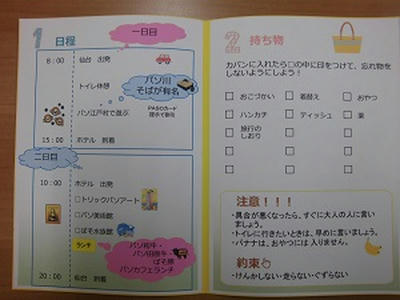 1 日程
一日目
8：00 仙台 出発
トイレ休憩
パソ川
そばが有名
パソ江戸村で遊ぶ
PASOカード
提示で割引
15：00 ホテル 到着
二日目
10：00 ホテル 出発
□トリックパソアート
□パソ美術館
□ぱそ水族館
ランチ
パソ和牛・
パソ田原牛・
ぱそ豚
パソカフェランチ
20：00 仙台 到着
2 持ち物
カバンに入れたら□の中に印をつけて、忘れ物を
しないようにしよう！
□ おこづかい □ 着替え □ おやつ
□ ハンカチ □ ティッシュ □ 薬
□ 旅行の
しおり □ □
□ □ □
□ □ □
注意！！！
・具合が悪くなったら、すぐに大人の人に言い
ましょう。
・トイレに行きたいときは、早めに言いましょう。
・バナナは、おやつには入りません。
約束
・けんかしない・走らない・ぐずらない